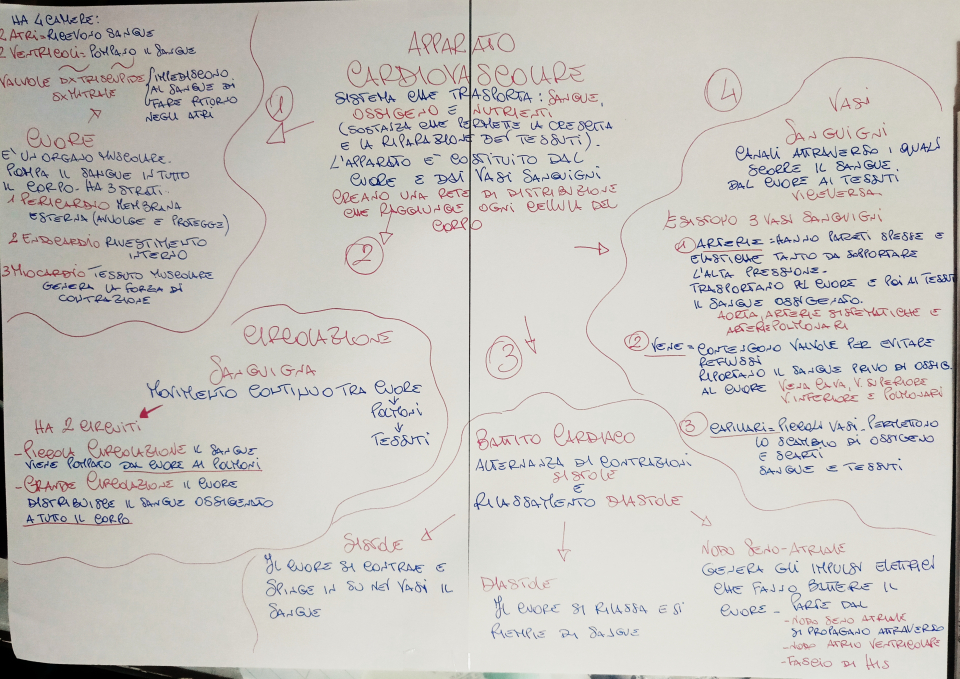 APPARATO
CARDIOVASCOLARE
SISTEMA CHE TRASPORTA: SANGUE,
OSSIGENO E NUTRIENTI
(SOSTANZA CHE PERMETTE LA CRESCITA
E LA RIPARAZIONE DEI TESSUTI).
L'APPARATO E' COSTITUITO DAL
CUORE E DAI VASI SANGUIGNI
CREANO UNA RETE DI DISTRIBUZIONE
CHE RAGGIUNGE OGNI CELLULA DEL
CORPO
1
HA 4 CAMERE:
2 ATRI = RICEVONO SANGUE
2 VENTRICOLI = POMPANO IL SANGUE
VALVOLE DX TRISCUPIDE
SX MITRALE
IMPEDISCONO
AL SANGUE DI
FARE RITORNO
NEGLI ATRI
CUORE
E' UN ORGANO MUSCOLARE.
POMPA IL SANGUE IN TUTTO
IL CORPO - HA 3 STRATI.
1 PERICARDIO MEMBRANA
ESTERNA (AVVOLGE E PROTEGGE)
2 ENDOCARDIO RIVESTIMENTO
INTERNO
3 MIOCARDIO TESSUTO MUSCOLARE
GENERA LA FORZA DI
CONTRAZIONE
2
CIRCOLAZIONE
SANGUIGNA
MOVIMENTO CONTINUO TRA CUORE
POLMONI
TESSUTI
HA 2 CIRCUITI
- PICCOLA CIRCOLAZIONE IL SANGUE
VIENE POMPATO DAL CUORE AI POLMONI
- GRANDE CIRCOLAZIONE IL CUORE
DISTRIBUISCE IL SANGUE OSSIGENATO
A TUTTO IL CORPO
3
BATTITO CARDIACO
ALTERNANZA DI CONTRAZIONI
SISTOLE
E
RILASSAMENTO DIASTOLE
SISTOLE
IL CUORE SI CONTRAE E
SPINGE IN SU NEI VASI IL
SANGUE
DIASTOLE
IL CUORE SI RILASSA E SI
RIEMPIE DI SANGUE
NODO SENO-ATRIALE
GENERA GLI IMPULSI ELETTRICI
CHE FANNO BATTERE IL
CUORE - PARTE DAL
- NODO SENO ATRIALE
SI PROPAGANO ATTRAVERSO
- NODO ATRIO VENTRICOLARE
- FASCIO DI HIS
4
VASI
SANGUIGNI
CANALI ATTRAVERSO I QUALI
SCORRE IL SANGUE
DAL CUORE AI TESSUTI
VICEVERSA
ESISTONO 3 VASI SANGUIGNI
1 ARTERIE = HANNO PARETI SPESSE E
ELASTICHE TANTO DA SOPPORTARE
L'ALTA PRESSIONE.
TRASPORTANO DEL CUORE E POI AI TESSUTI
IL SANGUE OSSIGENATO.
AORTA, ARTERIE SISTEMATICHE E
ARTERIE POLMONARI
2 VENE = CONTENGONO VALVOLE PER EVITARE
REFLUSSI
RIPORTANO IL SANGUE PRIVO DI OSSIG.
AL CUORE VENA CAVA, V. SUPERIORE
V INFERIORE E POLMONARI
3 CAPILLARI = PICCOLI VASI - PERMETTONO
LO SCAMBIO DI OSSIGENO
E SCARTI
SANGUE E TESSUTI